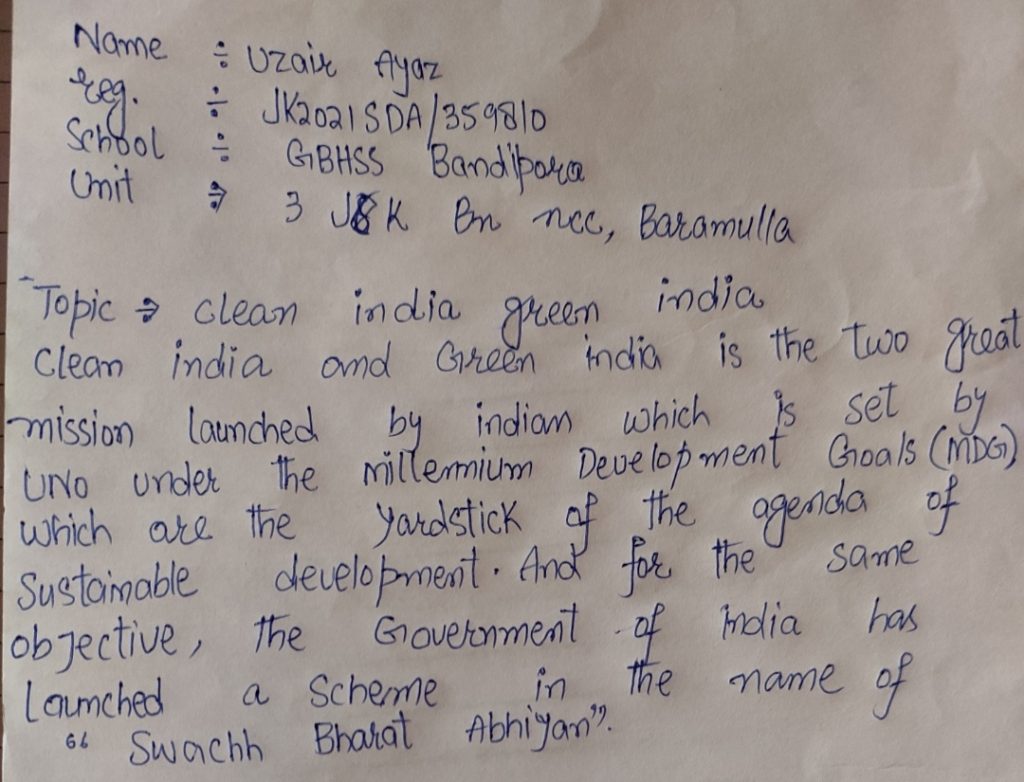 Name ÷ Uzair Ayaz
reg. ÷ JK2021SDA/359810
School ÷ GBHSS Bandipora
Unit ⇒ 3 J&K Bn ncc, Baramulla
Topic ⇒ clean india green india
Clean india and Green india is the two great
mission launched by indian which is set by
UNO under the millennium Development Goals (MDG)
which are the yardstick of the agenda of
Sustainable development. And for the same
objective, the Government of india has
launched a Scheme in the name of
“ Swachh Bharat Abhiyan”.